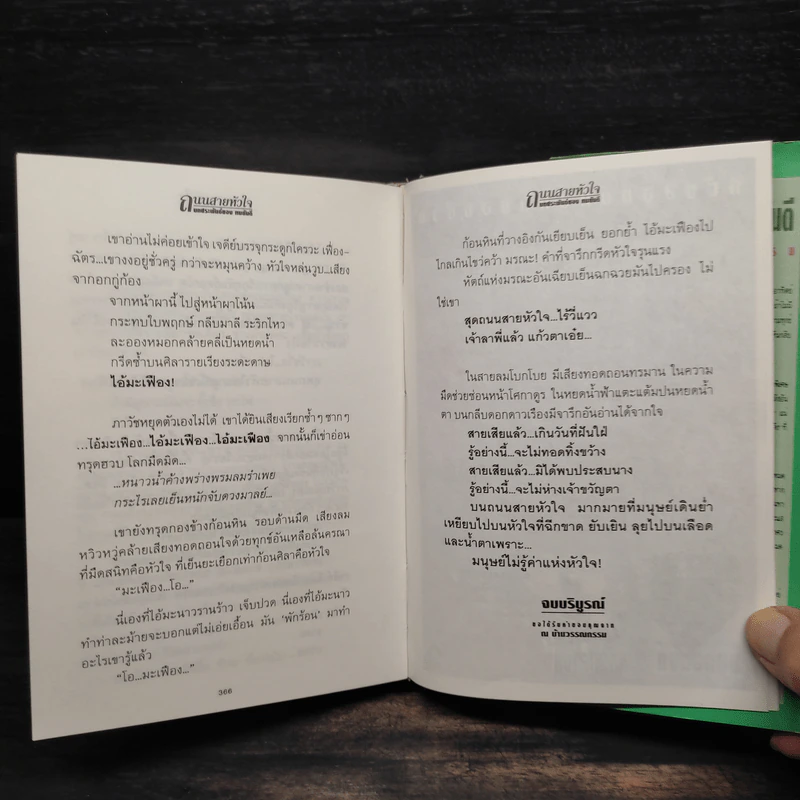 ถนนสายหัวใจ
บทสระพันธ์ของ ทมยันตี
เขาอ่านไม่ค่อยเข้าใจ เจดีย์บรรจุกระดูกใครวะ เฟื่อง-
ฉัตร...เขางงอยู่ชั่วครู่ กว่าจะหมุนคว้าง หัวใจหล่นวูบ...เสียง
จากอกกู่ก้อง
จากหน้าผานี้ ไปสู่หน้าผาโน้น
กระทบใบพฤกษ์ กลีบมาลี ระริกไหว
ละอองหมอกคล้ายคลี่เป็นหยดน้ำ
กรีดซ้ำบนศิลารายเรียงระดะดาษ
ไอ้มะเฟือง!
ภาวัชหยุดตัวเองไม่ได้ เขาได้ยินเสียงเรียกซ้ำๆ ซากๆ
...ไอ้มะเฟือง...ไอ้มะเฟือง...ไอ้มะเฟือง จากนั้นก็เข่าอ่อน
ทรุดฮวบ โลกมืดมิด...
...หนาวน้ำค้างพร่างพรมลมรำเพย
กระไรเลยเย็นหนักจับดวงมาลย์...
เขายังทรุดกองข้างก้อนหิน รอบด้านมืด เสียงลม
หวิวหวู่คล้ายเสียงทอดถอนใจด้วยทุกข์อันเหลือล้นครณา
ที่มืดสนิทคือหัวใจ ที่เย็นยะเยือกเท่าก้อนศิลาคือหัวใจ
“มะเฟือง...โอ...”
นี่เองที่ไอ้มะนาวรานร้าว เจ็บปวด นี่เองที่ไอ้มะนาว
ทำท่าละม้ายจะบอกแต่ไม่เอ่ยเอื้อน มัน ‘พักร้อน’ มาทำ
อะไรเขารู้แล้ว
“โอ...มะเฟือง...”
366
ถนนสายหัวใจ
บทสระพันธ์ของ ทมยันตี
ก้อนหินที่วางอิงกันเยียบเย็น ยอกย้ำ โอ้มะเฟืองไป
ไกลเกินไขว่คว้า มรณะ! คำที่จารึกกรีดหัวใจรุนแรง
หัตถ์แห่งมรณะอันเฉียบเย็นฉกฉวยมันไปครอง ไม่
ใช่เขา
สุดถนนสายหัวใจ...ไร้วี่แวว
เจ้าลาพี่แล้ว แก้วตาเอ๋ย...
ในสายลมโบกโบย มีเสียงทอดถอนทรมาน ในความ
มืดช่วยซ่อนหน้าโศกาดูร ในหยดน้ำฟ้าแตะแต้มปนหยดน้ำ
ตา บนกลีบดอกดาวเรืองมีจารึกอันอ่านได้จากใจ
สายเสียแล้ว...เกินวันที่ฝันใฝ่
รู้อย่างนี้...จะไม่ทอดทิ้งขว้าง
สายเสียแล้ว...มิได้พบประสบนาง
รู้อย่างนี้...จะไม่ห่างเจ้าขวัญตา
บนถนนสายหัวใจ มากมายที่มนุษย์เดินย่ำ
เหยียบไปบนหัวใจที่ฉีกขาด ยับเยิน ลุยไปบนเลือด
และน้ำตาเพราะ...
มนุษย์ไม่รู้ค่าแห่งหัวใจ!
จบบริบูรณ์
ณ บ้านวรรณกรรม